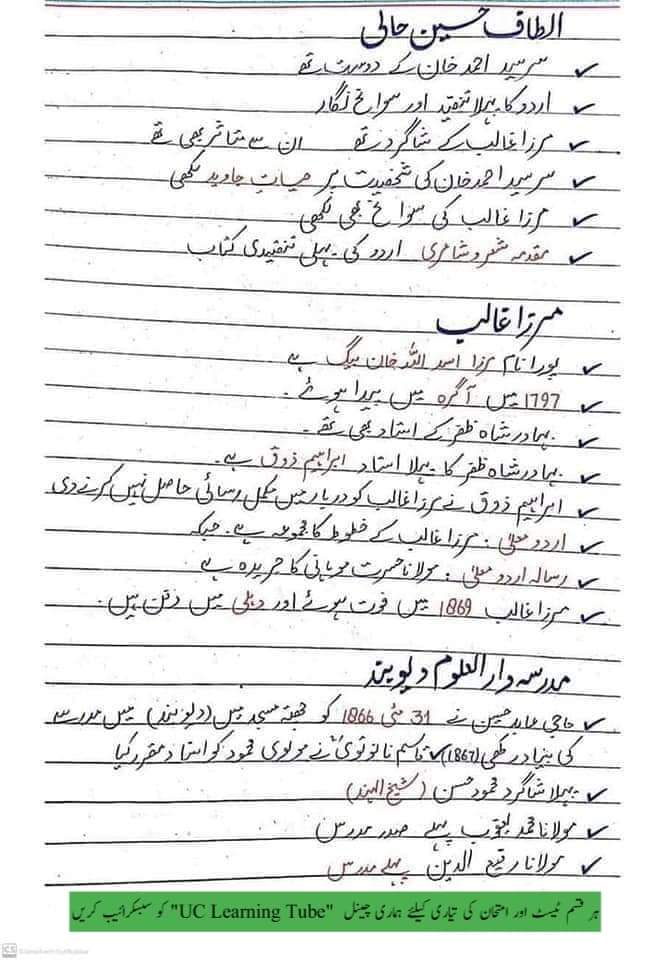 الطاف حسین حالی
✓ سرسید احمد خان کے دوست تھے
✓ اردو کا پہلا تنقید اور سوانح نگار
✓ مرزا غالب کے شاگرد تھے ان سے متاثر بھی تھے
✓ سرسید احمد خان کی شخصیت پر حیات جاوید لکھی
✓ مرزا غالب کی سوانح بھی لکھی
✓ مقدمہ شعر و شاعری اردو کی پہلی تنقیدی کتاب
مرزا غالب
✓ پورا نام مرزا اسد اللہ خان بیگ ہے
✓ 1797 میں آگرہ میں پیدا ہوئے۔
✓ بہادر شاہ ظفر کے استاد بھی تھے۔
✓ بہادر شاہ ظفر کا پہلا استاد ابراہیم ذوق ہے۔
✓ ابراہیم ذوق نے مرزا غالب کو دربار میں مکمل رسائی حاصل نہیں کرنے دی
✓ اردو معلیٰ : مرزا غالب کے خطوط کا مجموعہ ہے۔ جبکہ
✓ رسالہ اردو معلیٰ : مولانا حسرت موہانی کا جریدہ ہے
✓ مرزا غالب 1869 میں فوت ہوئے اور دہلی میں دفن ہیں۔
مدرسہ دار العلوم دیوبند
✓ حاجی عابد حسین نے 31 مئی 1866 کو چھتہ مسجد میں (دیوبند) میں مدرسے
کی بنیاد رکھی (1867) ✓ قاسم نانوتوی نے مولوی محمود کو استاد مقرر کیا
✓ پہلا شاگرد محمود حسن (شیخ الہند)
✓ مولانا محمد یعقوب پہلے صدر مدرس
✓ مولانا رفیع الدین پہلے مدرس
ہر قسم ٹیسٹ اور امتحان کی تیاری کیلئے ہماری چینل "UC Learning Tube" کو سبسکرائیب کریں
CS